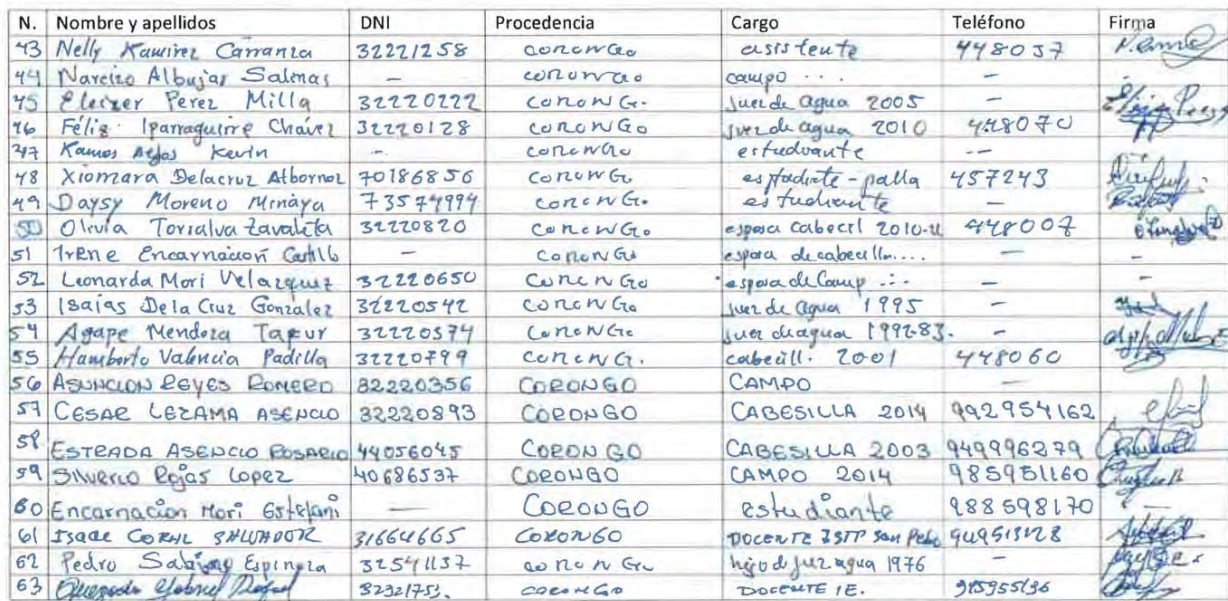 N. Nombre y apellidos DNI Procedencia Cargo Teléfono Firma
43 Nelly Ramirez Carranza 32221258 corongo asistente 448037
44 Narcizo Albujar Salinas — corongo campo ... —
45 Eleizer Perez Milla 32220222 corongo. juez de agua 2005 —
46 Féliz Iparraguirre Chávez 32220128 corongo juez de agua 2010 448070
47 Ramos Kevin — corongo estudvante --
48 Xiomara Delacruz Albornoz 70186856 corongo estadiate - palla 457243
49 Daysy Moreno Minaya 73574994 corongo estudiante —
50 Olivia Torralva Zavaleta 32220820 corongo esposa cabecil 2010-11 448007
51 Irene Encarnación Castillo — corongo espora de cabecilla.... — —
52 Leonarda Mori Velazquez 32220650 corongo esposa de Camp ... — —
53 Isaías De la Cruz González 32220542 corongo juez de agua 1995 —
54 Agape Mendoza Tapur 32220574 corongo juez de agua 1992-83. —
55 Humberto Valencia Padilla 32220799 corongo. cabecill. 2001 448060
56 ASUNCION REYES ROMERO 32220356 CORONGO CAMPO —
57 CESAR LEZAMA ASENCIO 32220893 CORONGO CABESILLA 2014 992954162
58 ESTRADA ASENCIO ROSARIO 44056045 CORONGO CABESILLA 2003 949996279
59 Silverio Rojas Lopez 40686537 CORONGO CAMPO 2014 985951160
60 Encarnación Mori Estefani — CORONGO estudiante 988598170 —
61 Isaac CORAL SALVADOR 31664665 CORONGO DOCENTE ISTP San Pedro 949513128
62 Pedro Espinoza 32541137 corongo hijo de juez agua 1976 —
63 Quezada Gabriel 32321753. corongo DOCENTE IE. 975955196